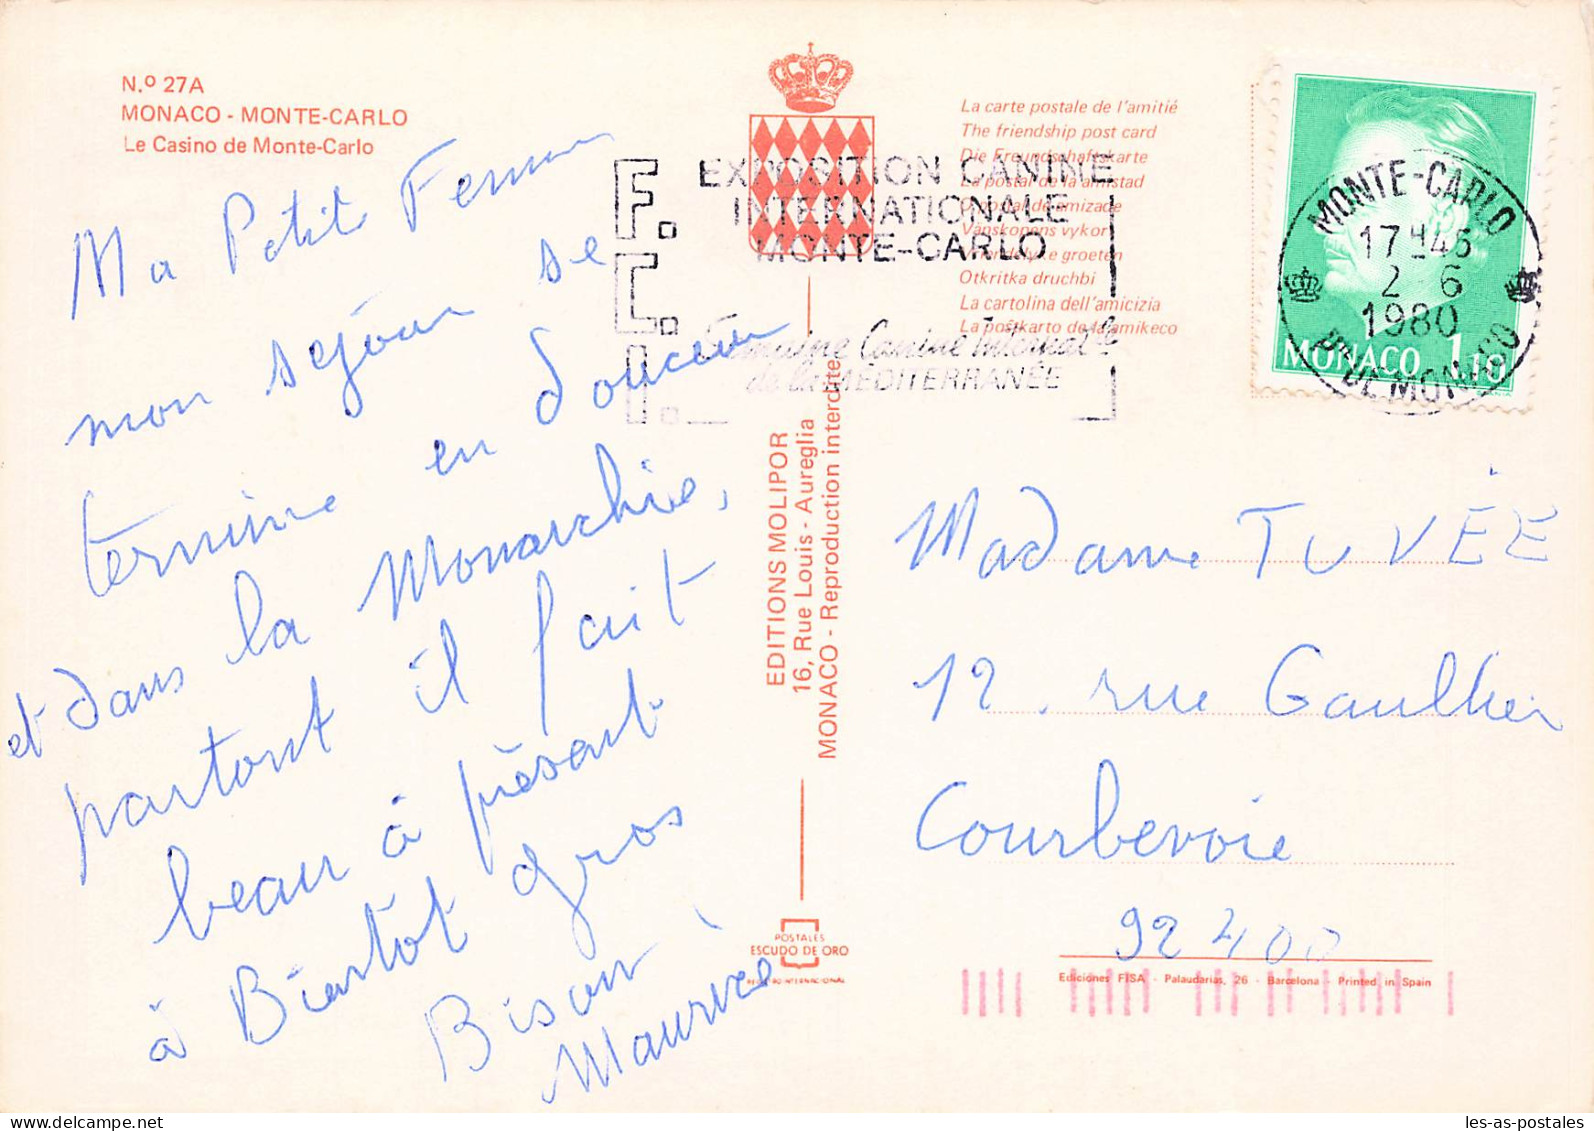 N.º 27A
MONACO - MONTE-CARLO
Le Casino de Monte-Carlo
Ma Petite Femme
mon sejour se
termine en douceur
et dans la Monarchie,
partout il fait
beau à présent
à Bientôt gros
Bisou
Maurice
F.
C.
I.
EXPOSITION CANINE
INTERNATIONALE
MONTE-CARLO
Semaine Canine Internat.le
de la MÉDITERRANÉE
La carte postale de l'amitié
The friendship post card
Die Freundschaftskarte
La postal de la amistad
O postal de amizade
Vanskapens vykort
Vriendelyke groeten
Otkritka druchbi
La cartolina dell'amicizia
La poŝtkarto de la amikeco
MONTE-CARLO
17 H 45
2 - 6
1980
Pté DE MONACO
MONACO 1,10
EDITIONS MOLIPOR
16, Rue Louis - Aureglia
MONACO - Reproduction interdite
POSTALES
ESCUDO DE ORO
REGISTRO INTERNACIONAL
Madame TUVÉE
12. rue Gaulthier
Courbevoie
92400
Ediciones FISA - Palaudarias, 26 - Barcelona - Printed in Spain
les-as-postcards